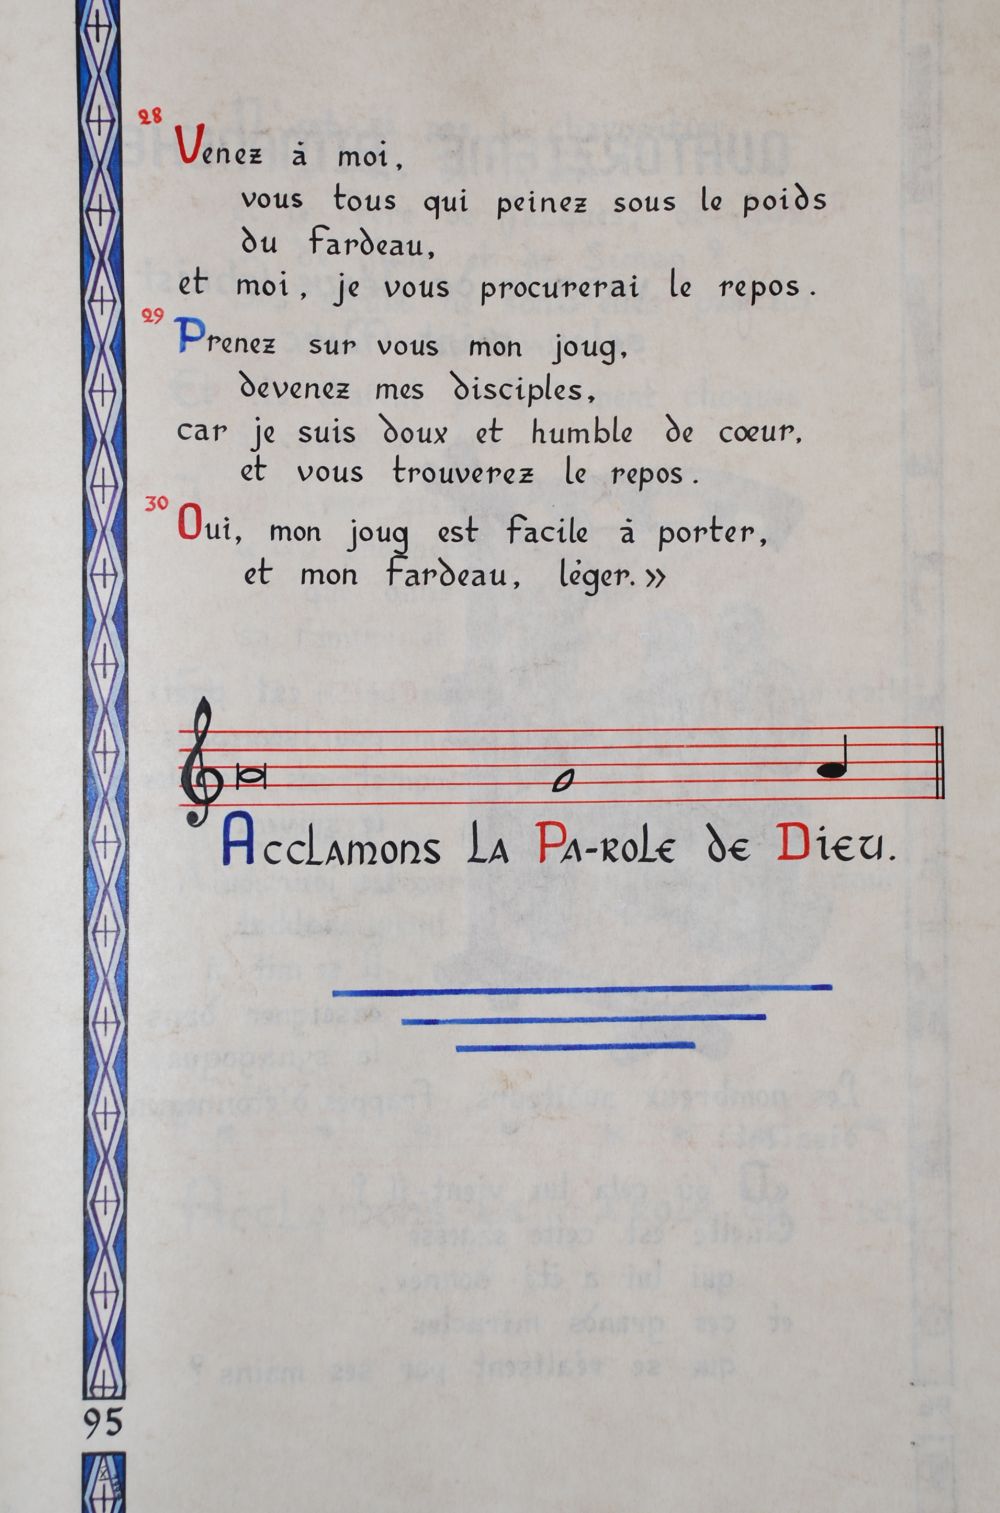 28
Venez à moi,
vous tous qui peinez sous le poids
du fardeau,
et moi, je vous procurerai le repos.
29
Prenez sur vous mon joug,
devenez mes disciples,
car je suis doux et humble de cœur,
et vous trouverez le repos.
30
Oui, mon joug est facile à porter,
et mon fardeau, léger. »
Acclamons la Pa-role de Dieu.
95